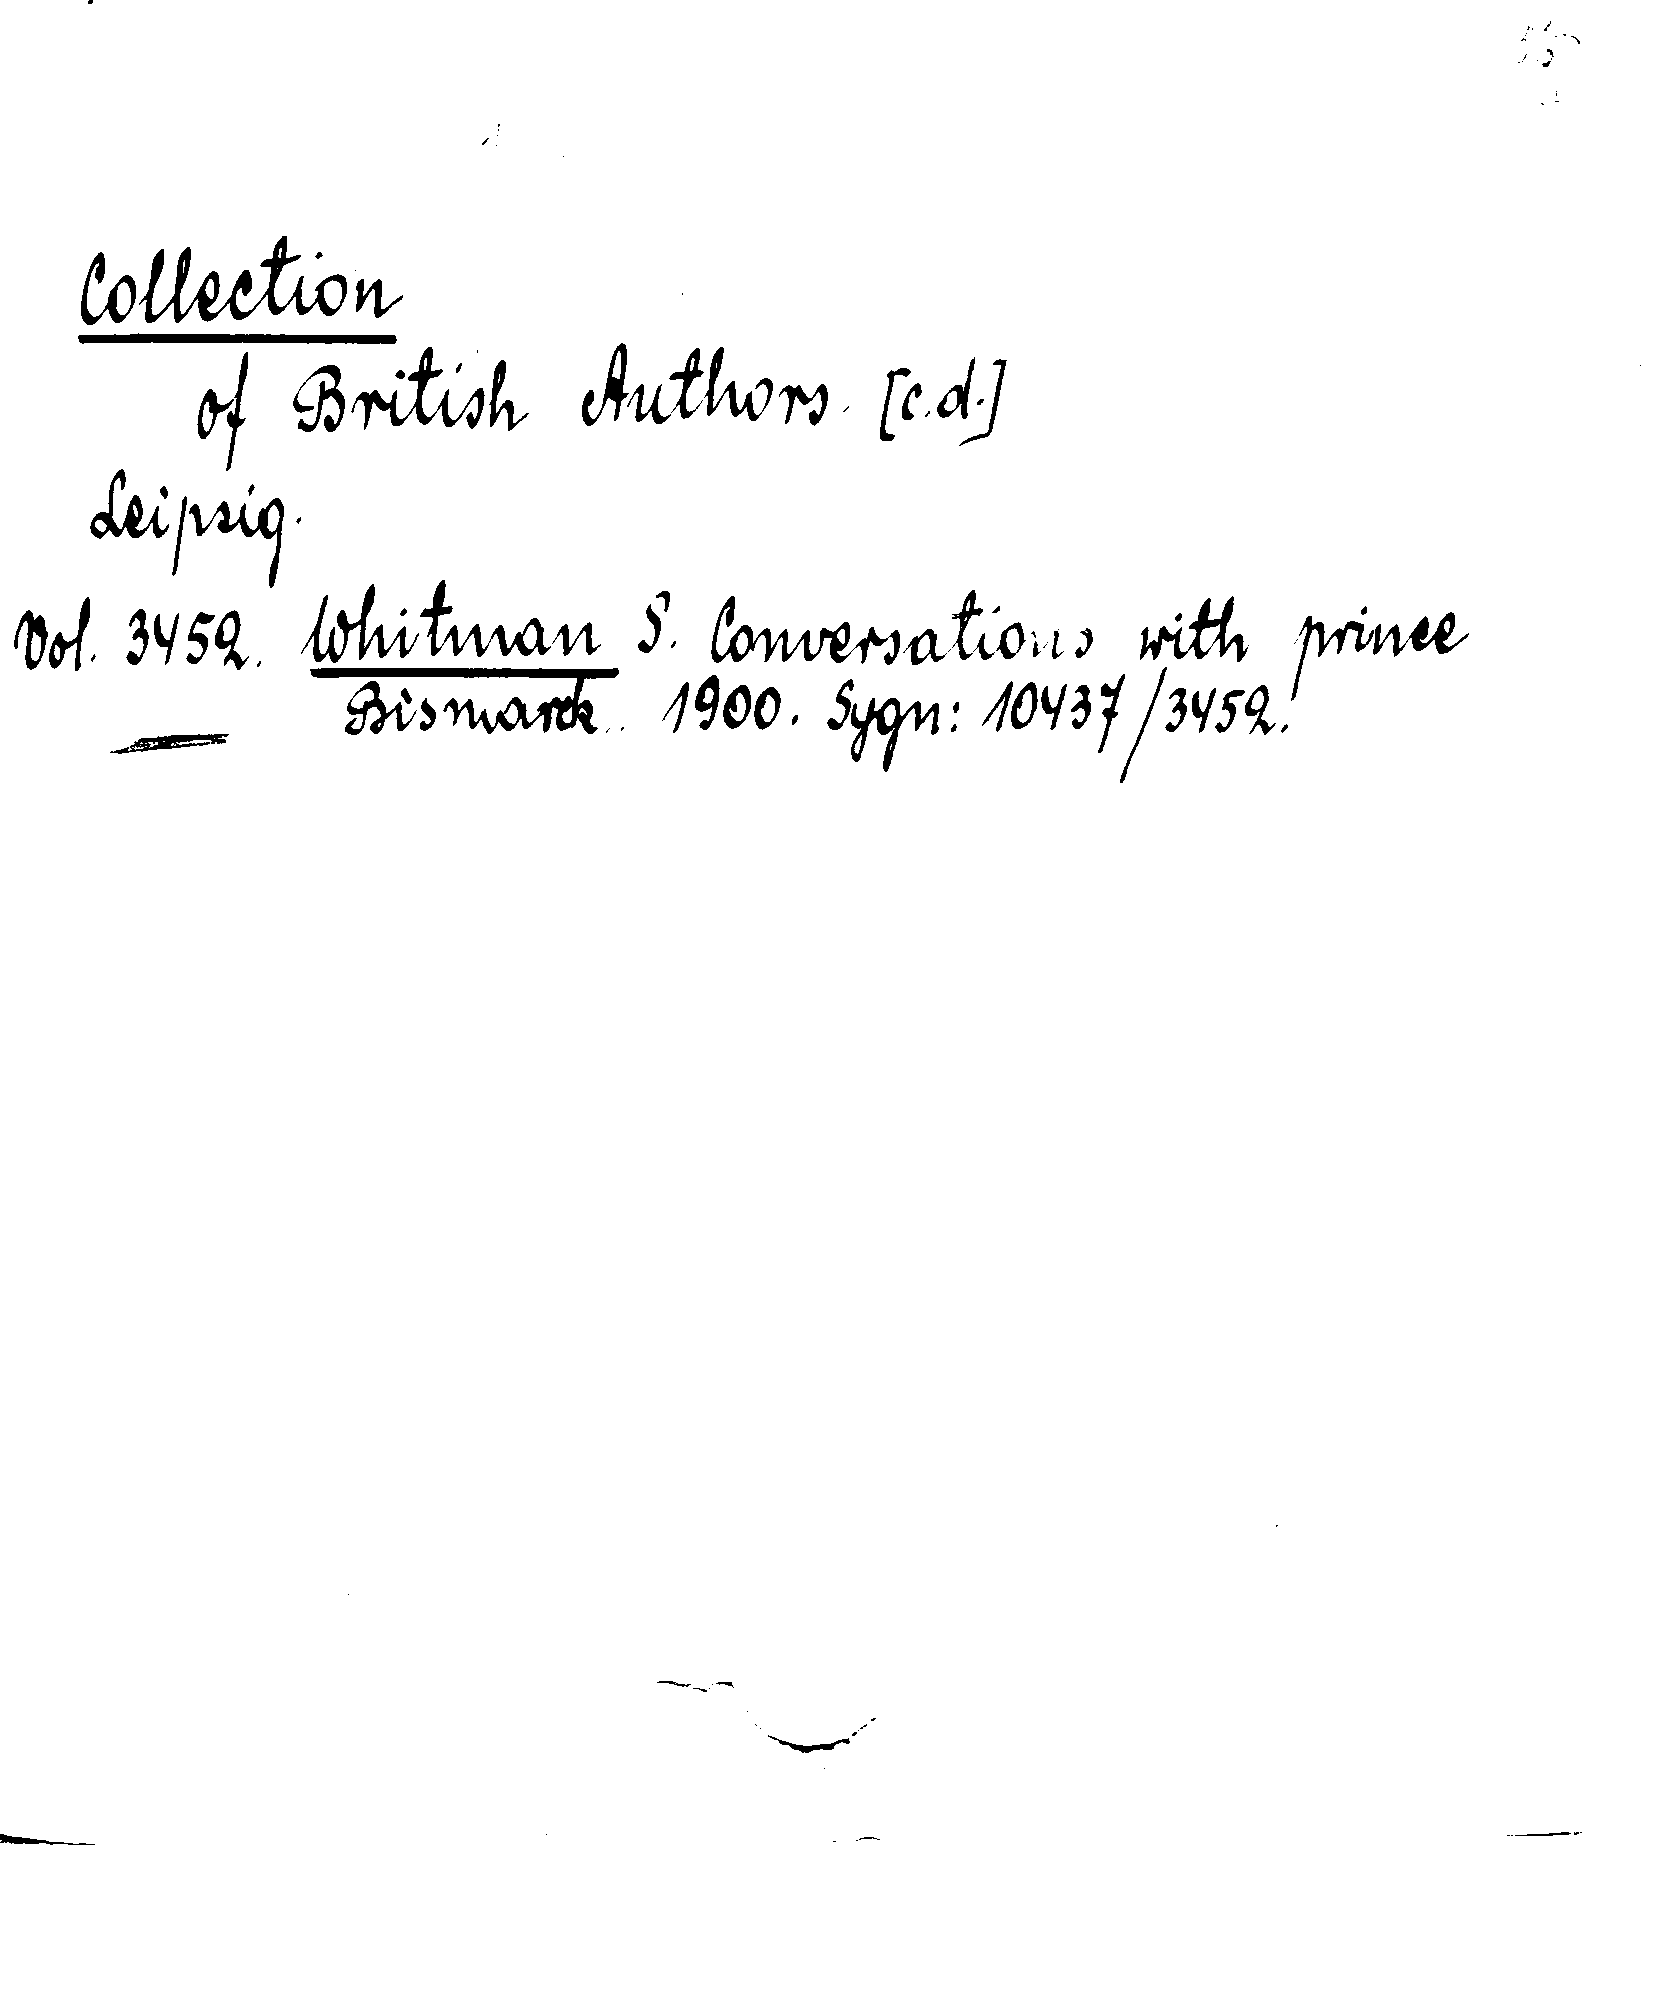 Collection
of British Authors. [c.d.]
Leipzig.
Vol. 3452. Whitman S. Conversations with prince
Bismarck. 1900. Sygn: 10437/3452.